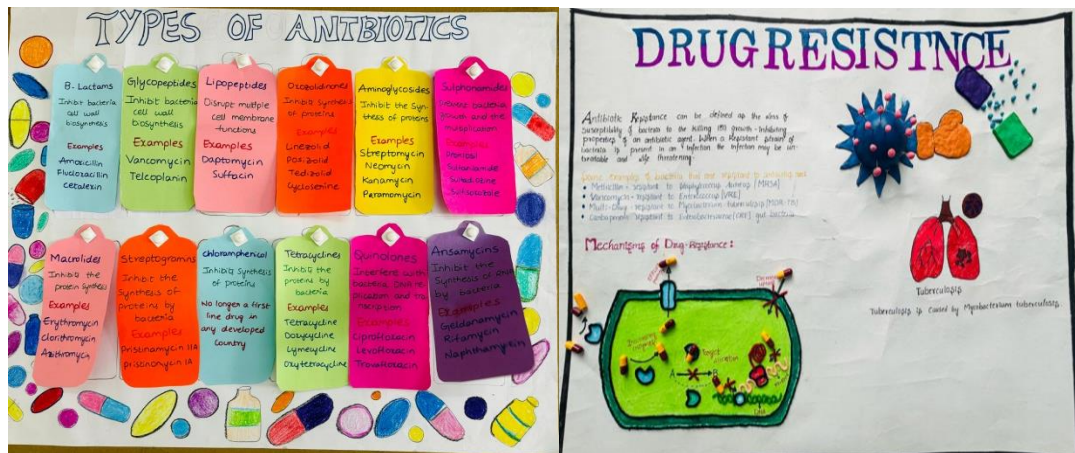 TYPES OF ANTBIOTICS
B-Lactams
Inhibit bacteria
cell wall
biosynthesis
Examples
Amoxicillin
Flucloxacillin
cefalexin
Glycopeptides
Inhibit bacteria
cell wall
biosynthesis
Examples
Vancomycin
Telcoplanin
Lipopeptides
Disrupt multple
cell membrane
functions
Examples
Daptomycin
Suffacin
Inhibit synthesis
of proteins
Examples
Linezolid
Posizolid
Tedizolid
Cycloserine
Aminoglycosides
Inhibit the Syn-
thesis of proteins
Examples
Streptomycin
Neomycin
Kanamycin
Paromomycin
Sulphonamides
growth and the
multiplication
Examples
Macrolides
Inhibit the
protein synthesis
Examples
Erythromycin
Clorithromycin
Azithromycin
Streptogramns
Inhibit the
Synthesis of
proteins by
bacteria
Examples
Pristinamycin IIA
pristinonycin IA
Chloramphenicol
Inhibits synthesis
of proteins
No longer a first
line drug in
any developed
country
Tetracyclines
Inhibit the
proteins by
bacteria
Examples
Tetracycline
Doxycycline
Lymecycline
Oxytetracycline
Quinolones
Interfere with
bacteria DNA re-
plication and tra
nscription
Examples
Ciprofloxacin
Levofloxacin
Trovafloxacin
Ansamycins
Inhibit the
Synthesis of RNA
by bacteria
Examples
Geldanamycin
Rifamycin
Naphthamycin
DRUG RESISTNCE
Antibiotic Resistance can be defined as the loss of
susceptibility of bacteria to the killing growth-inhibiting
properties of an antibiotic agent. When a Resistant strain of
bacteria is present in an infection the infection may be un-
treatable and life threatening.
Some examples of bacteria that are resistant to antibiotics
Methicillin-resistant to Staphylococcus Aureus [MRSA]
Vancomycin-resistant to Enterococcus [VRE]
Multi-Drug-resistant to Mycobacterium tuberculosis [MDR-TB]
resistant to [CRE] gut bacteria
Mechanisms of Drug-Resistance:
Target
A
B
DNA
Tuberculosis
Tuberculosis is caused by Mycobacterium tuberculosis